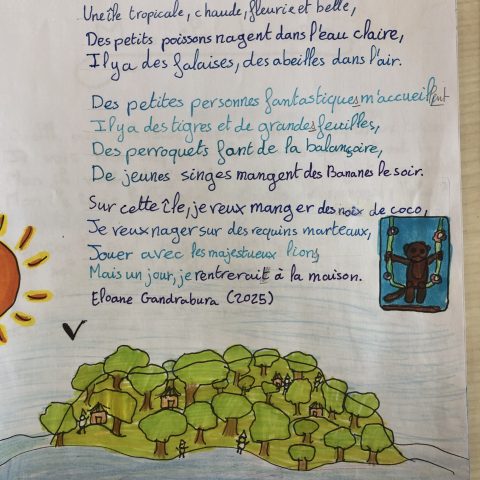 Une île tropicale, chaude, fleurie et belle,
Des petits poissons nagent dans l'eau claire,
Il y a des falaises, des abeilles dans l'air.
Des petites personnes fantastiques m'accueillent
Il y a des tigres et de grandes feuilles,
Des perroquets font de la balançoire,
De jeunes singes mangent des Bananes le soir.
Sur cette île, je veux manger des noix de coco,
Je veux nager sur des requins marteaux,
Jouer avec les majestueux lions,
Mais un jour, je rentrerait à la maison.
Eloane Gandrabura (2025)